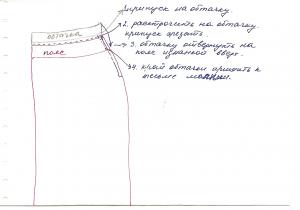 1. припуск на обтачку
2. расстрочить на обтачку
припуск срезать.
обтачка
3. обтачку отвернуть на
пояс изнанкой вверх.
пояс
4. край обтачки пришить к
тесьме